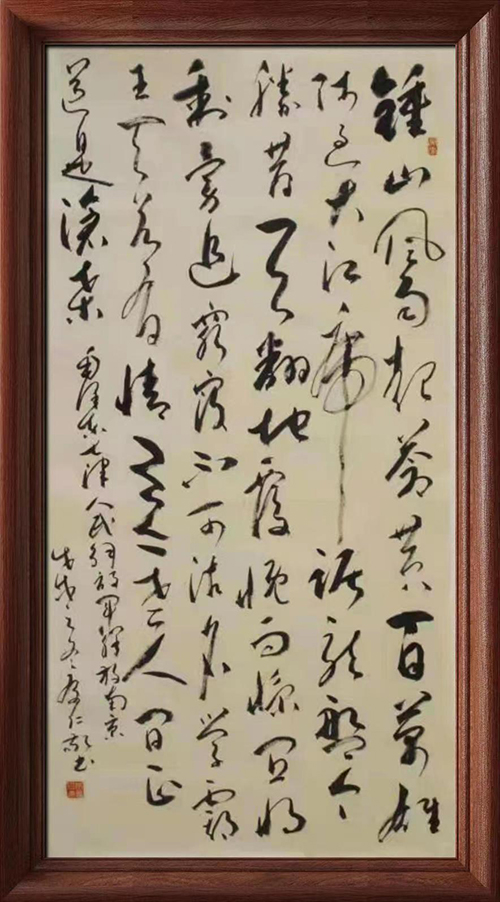 鍾山风雨起蒼黄百萬雄
师过大江虎踞龙盘今
勝昔天翻地覆慨而慷宜将
剩勇追窮寇不可沽名学霸
王天若有情天亦老人间正
道是滄桑
毛泽东七律人民解放军解放南京
戊戌之冬书